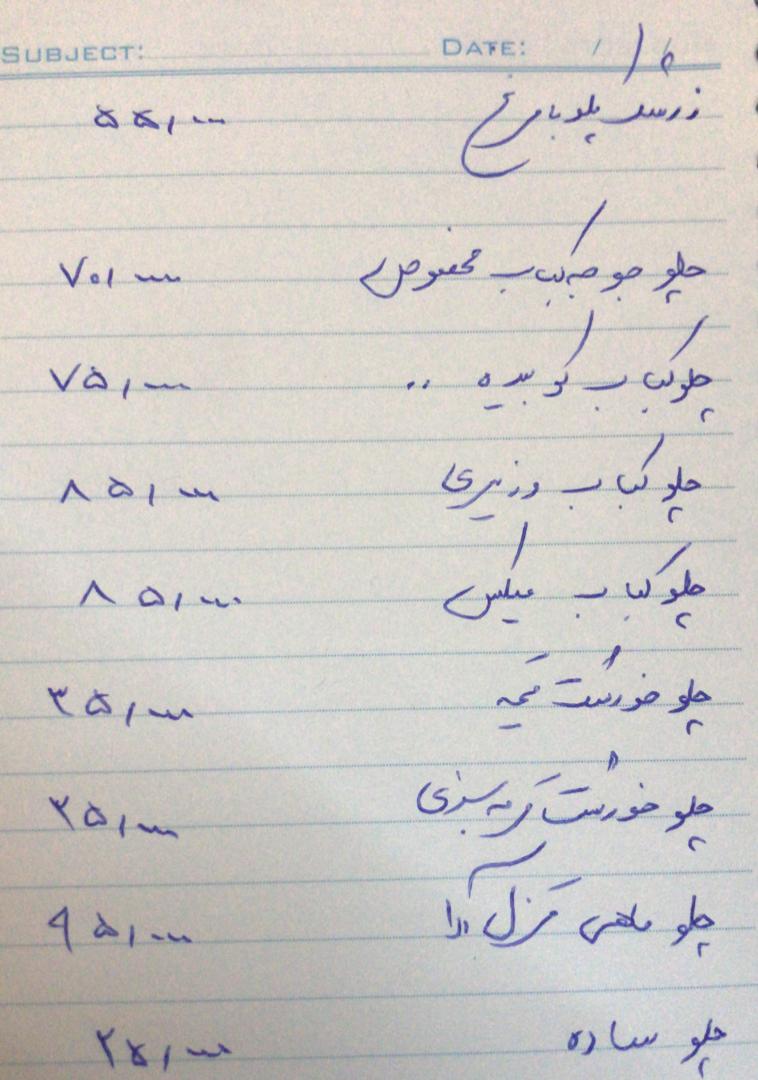 SUBJECT: DATE: / /
زرشک پلو با مرغ ۵۵/۰۰۰
چلو جوجه کباب مخصوص ۷۰/۰۰۰
چلو کباب کوبیده ۷۵/۰۰۰
چلو کباب وزیری ۸۵/۰۰۰
چلو کباب میکس ۸۵/۰۰۰
چلو خورشت قیمه ۳۵/۰۰۰
چلو خورشت قرمه سبزی ۳۵/۰۰۰
چلو ماهی قزل آلا ۹۵/۰۰۰
چلو ساده ۲۵/۰۰۰